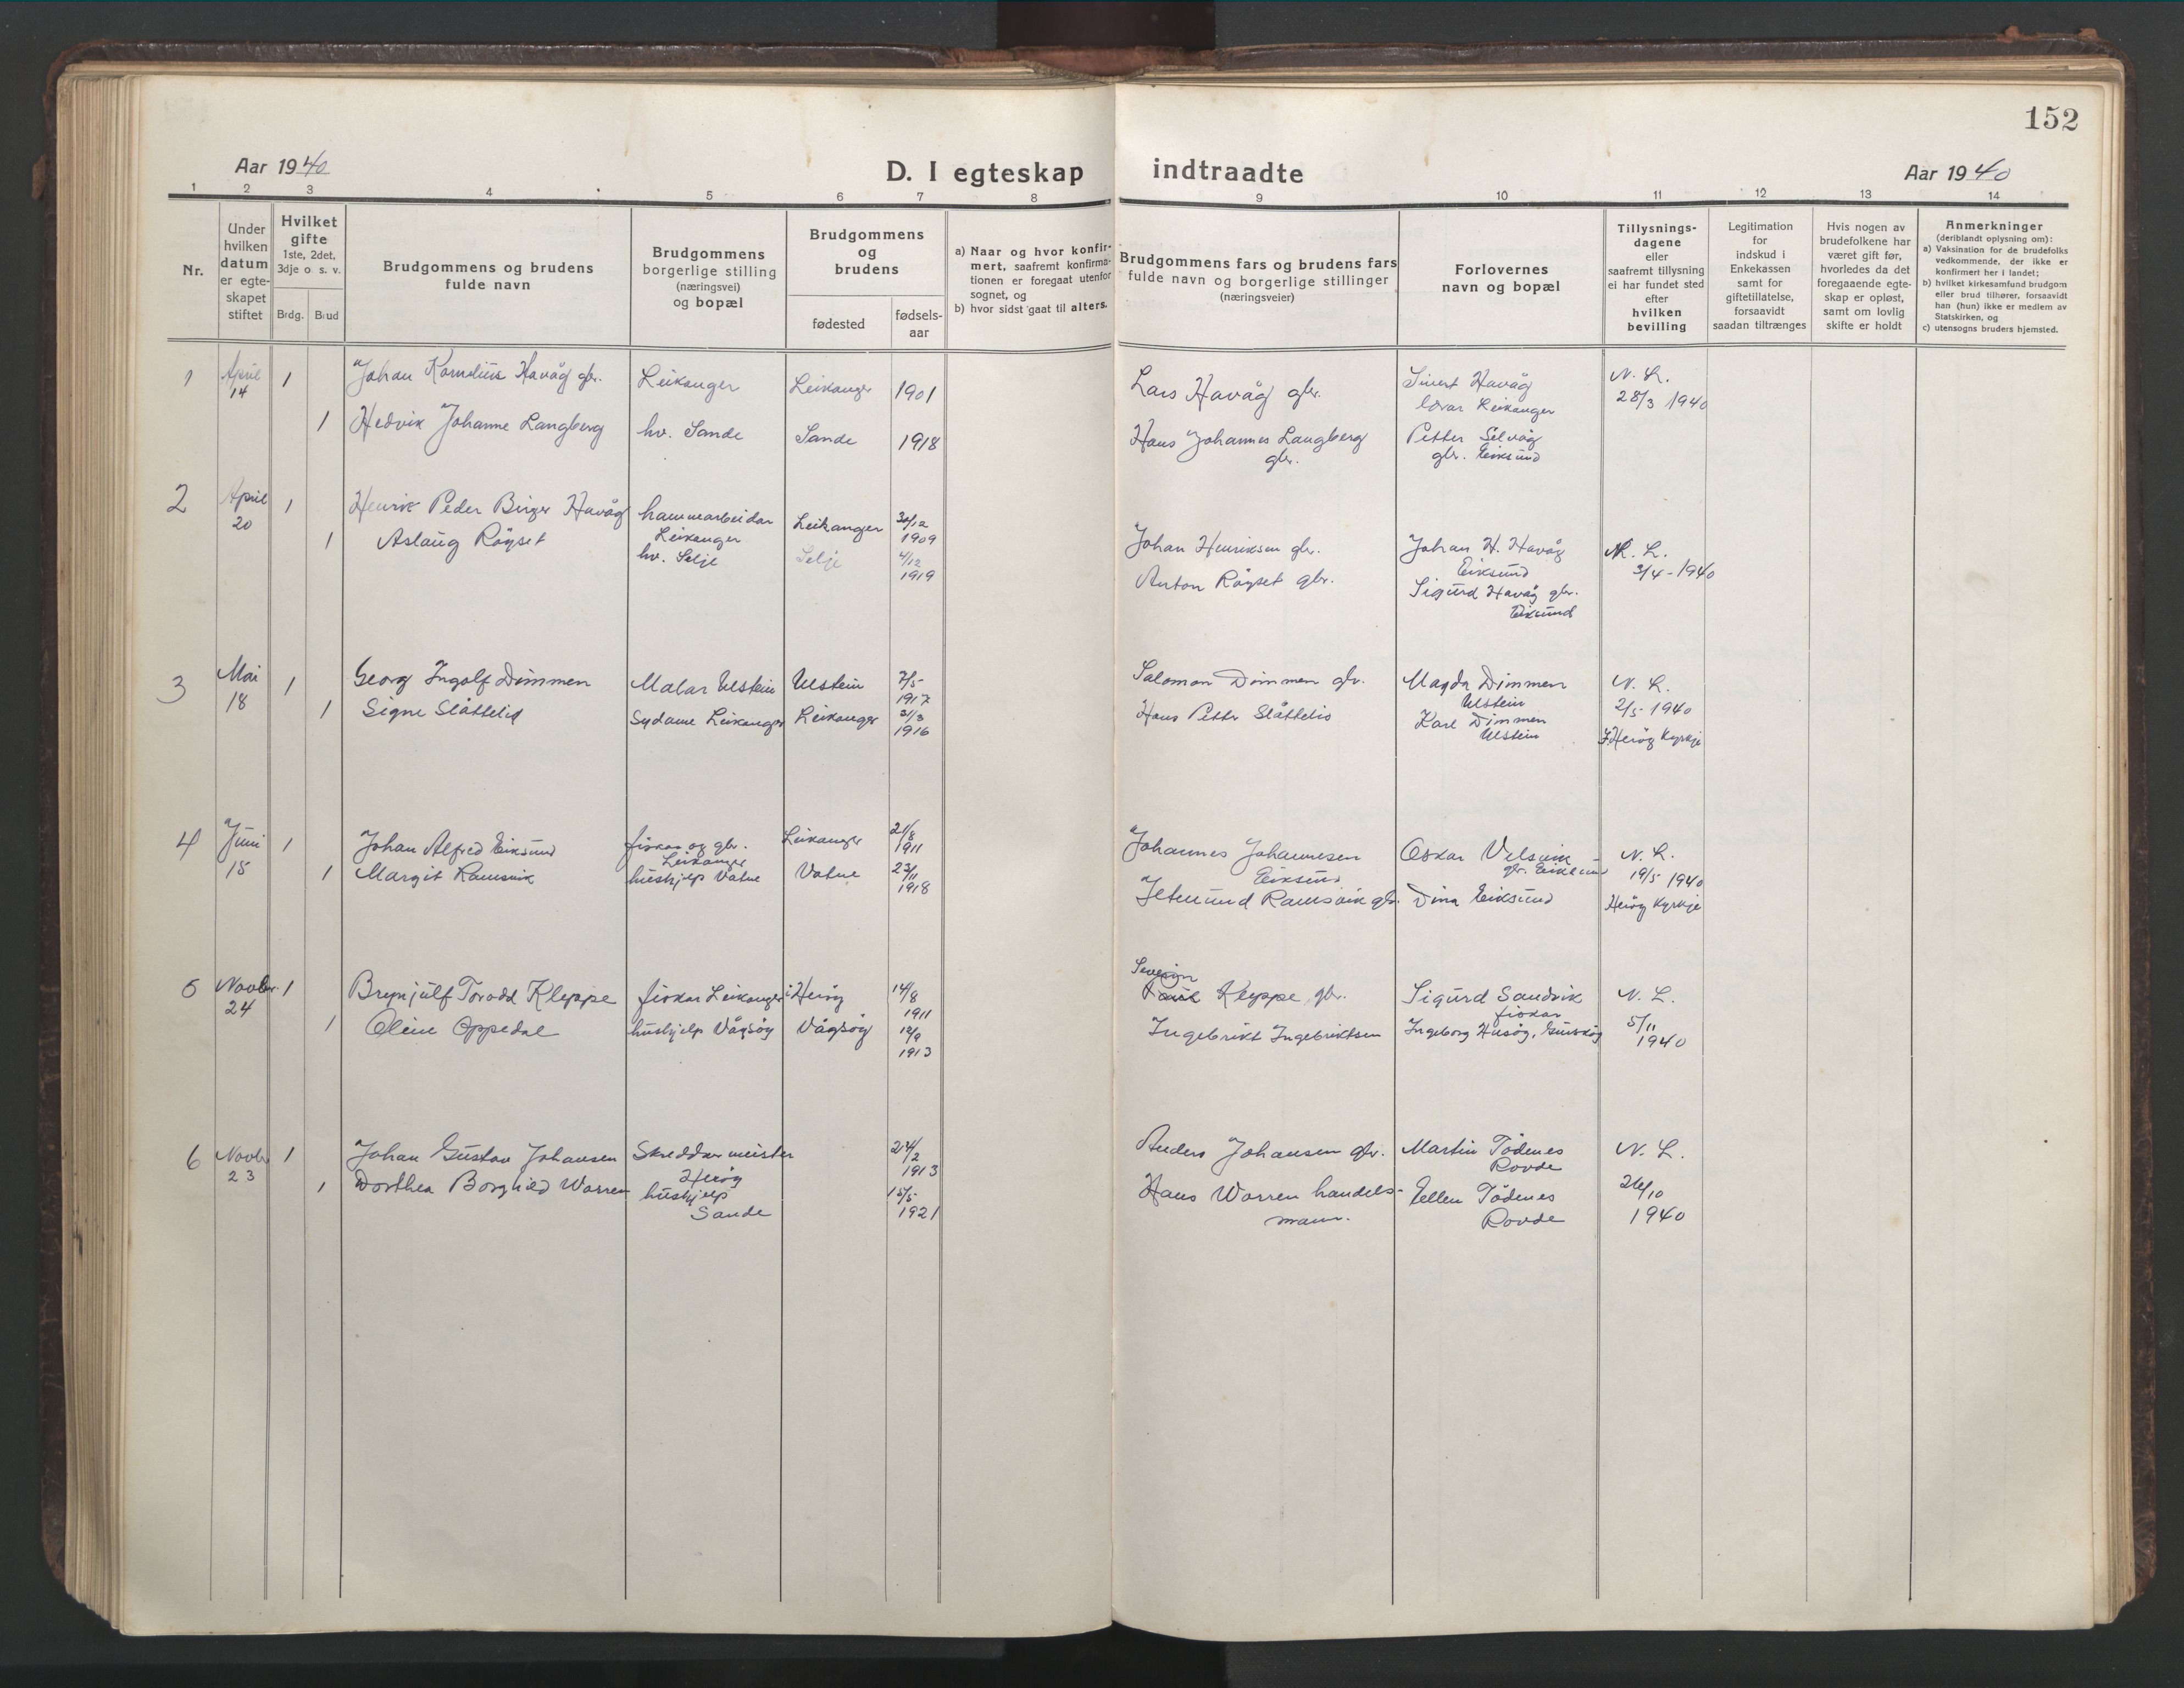 152
Aar 1940
D. I egteskap indtraadte
Aar 1940
1 2 3 4 5 6 7 8 9 10 11 12 13 14
Nr.
Under hvilken datum er egte-skapet stiftet
Hvilket gifte 1ste, 2det, 3dje o. s. v.
Brdg. Brud
Brudgommens og brudens fulde navn
Brudgommens borgerlige stilling (næringsvei) og bopæl
Brudgommens og brudens
fødested
fødsels-aar
a) Naar og hvor konfir-mert, saafremt konfirma-tionen er foregaat utenfor sognet, og
b) hvor sidst gaat til alters.
Brudgommens fars og brudens fars fulde navn og borgerlige stillinger (næringsveier)
Forlovernes navn og bopæl
Tillysnings-dagene eller saafremt tillysning ei har fundet sted efter hvilken bevilling
Legitimation for indskud i Enkekassen samt for giftetillatelse, forsaavidt saadan tiltrænges
Hvis nogen av brudefolkene har været gift før, hvorledes da det foregaaende egte-skap er opløst, samt om lovlig skifte er holdt
Anmerkninger
(deriblandt oplysning om):
a) Vaksination for de brudefolks vedkommende, der ikke er konfirmert her i landet;
b) hvilket kirkesamfund brudgom eller brud tilhører, forsaavidt han (hun) ikke er medlem av Statskirken, og
c) utensogns bruders hjemsted.
1 April 14 1 Johan Kornelius Havåg gbr. Leikanger Leikanger 1901 Lars Havåg gbr. Sivert Havåg N. L.
lærar Leikanger 28/3 1940
1 Hedvik Johanne Langberg hv. Sande Sande 1918 Hans Johannes Langberg gbr. Petter Selvåg
gbr. Eiksund
2 April 20 1 Henrik Peder Birger Havåg hamnarbeidar Leikanger Leikanger 30/12 1909 Johan Henriksen gbr. Johan H. Havåg Eiksund N. L.
3/4-1940
1 Aslaug Röyset hv. Selje Selje 4/12 1919 Anton Röyset gbr. Sigurd Havåg gbr.
Eiksund
3 Mai 18 1 Georg Ingolf Dimmen Malar Ulstein Ulstein 7/5 1917 Salomon Dimmen gbr. Magda Dimmen Ulstein N. L.
2/5-1940
1 Signe Slåttelid Sydame Leikanger Leikanger 31/3 1916 Hans Petter Slåttelid Karl Dimmen Ulstein
I Heröy Kyrkje
4 Juni 15 1 Johan Alfred Eiksund fiskar og gbr. Leikanger Leikanger 21/8 1911 Johannes Johannesen Eiksund Oskar Velsvik gbr. Eiksund N. L.
19/5 1940
1 Margit Ramsvik hushjelp Vatne Vatne 23/11 1918 Jetmund Ramsvik gbr. Dina Eiksund Heröy Kyrkje
5 Novbr. 24 1 Brynjulf Torodd Kleppe fiskar Leikanger i Heröy 14/8 1911 Severin Kleppe gbr. Sigurd Sandvik fiskar N. L.
1 Oline Oppedal hushjelp Vågsöy Vågsöy 12/9 1913 Ingebrikt Ingebriktsen Ingeborg Husöy, Gurskøy 5/11 1940
6 Novbr 23 1 Johan Gustav Johansen Skreddarmeister Heröy 24/2 1913 Anders Johansen gbr. Martin Tödenes Rovde N. L.
1 Dorthea Borghild Warren hushjelp Sande 15/5 1921 Hans Warren handels-mann. Ellen Tödenes Rovde 26/10 1940